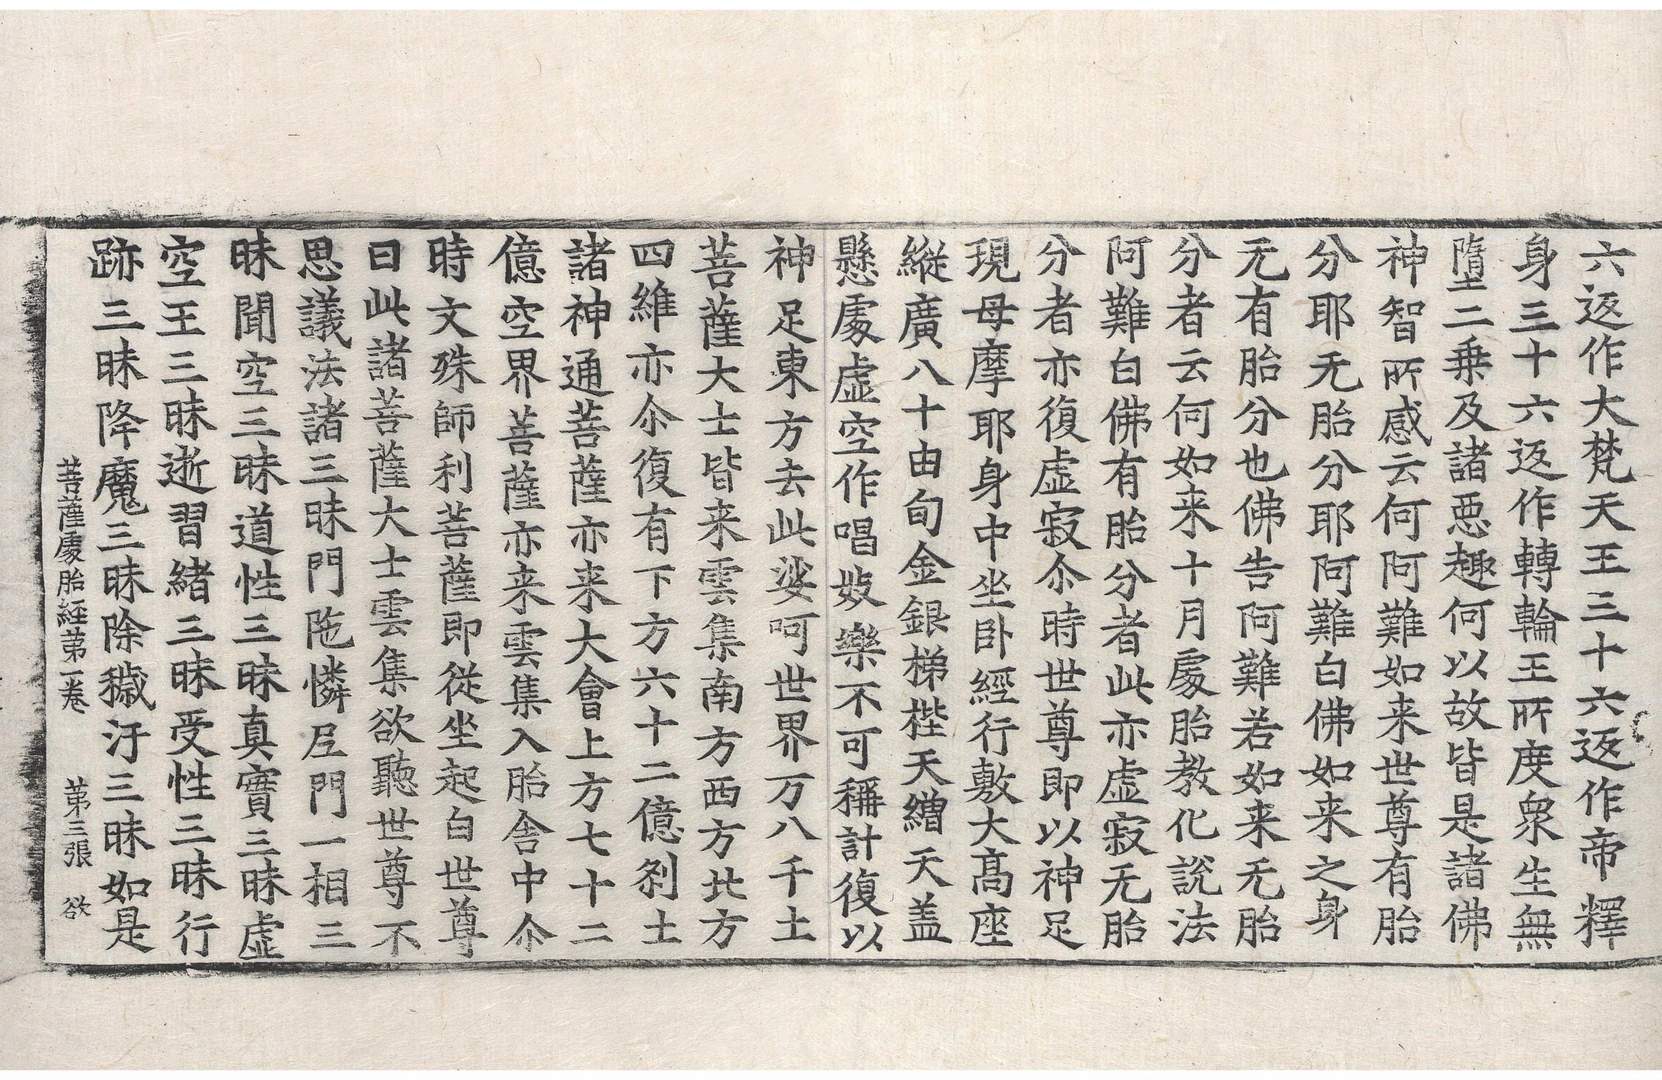 六返作大梵天王三十六返作帝釋
身三十六返作轉輪王所度衆生無
墮二乗及諸惡趣何以故皆是諸佛
神智所感云何阿難如来世尊有胎
分耶无胎分耶阿難白佛如来之身
无有胎分也佛告阿難若如来无胎
分者云何如来十月處胎教化說法
阿難白佛有胎分者此亦虛寂无胎
分者亦復虛寂尒時世尊即以神足
現母摩耶身中坐卧經行敷大髙座
縱廣八十由旬金銀梯桯天繒天盖
懸處虛空作唱妓樂不可稱計復以
神足東方去此娑呵世界万八千土
菩薩大士皆来雲集南方西方北方
四維亦尒復有下方六十二億刹土
諸神通菩薩亦来大會上方七十二
億空界菩薩亦来雲集入胎舍中尒
時文殊師利菩薩即從坐起白世尊
曰此諸菩薩大士雲集欲聽世尊不
思議法諸三昧門陁憐尼門一相三
昧聞空三昧道性三昧真實三昧虛
空王三昧逝習緒三昧受性三昧行
跡三昧降魔三昧除穢汙三昧如是
菩薩處胎經苐一卷 苐三張 欲